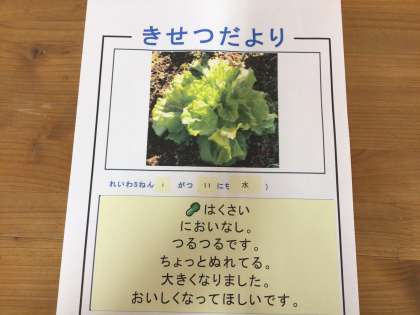 きせつだより
れいわ5ねん 1 がつ 11 にち 水 )
はくさい
においなし。
つるつるです。
ちょっとぬれてる。
大きくなりました。
おいしくなってほしいです。